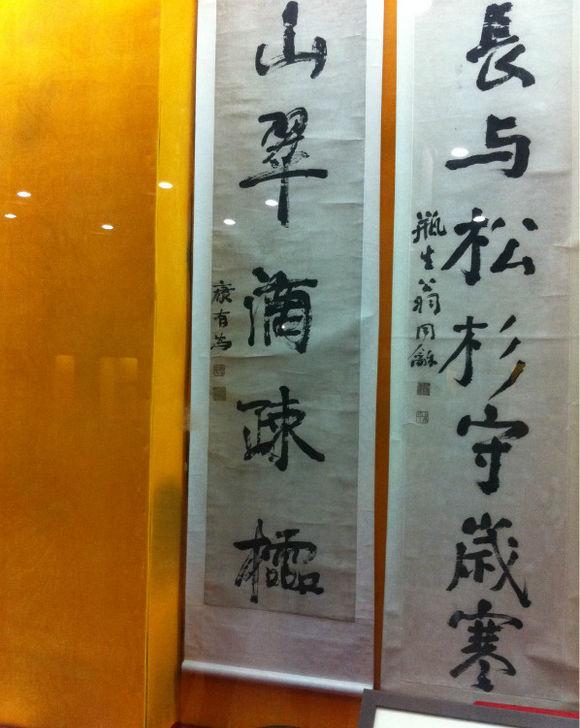 長与松杉守歲寒
瓶生翁同龢
山翠滴疎櫺
康有為